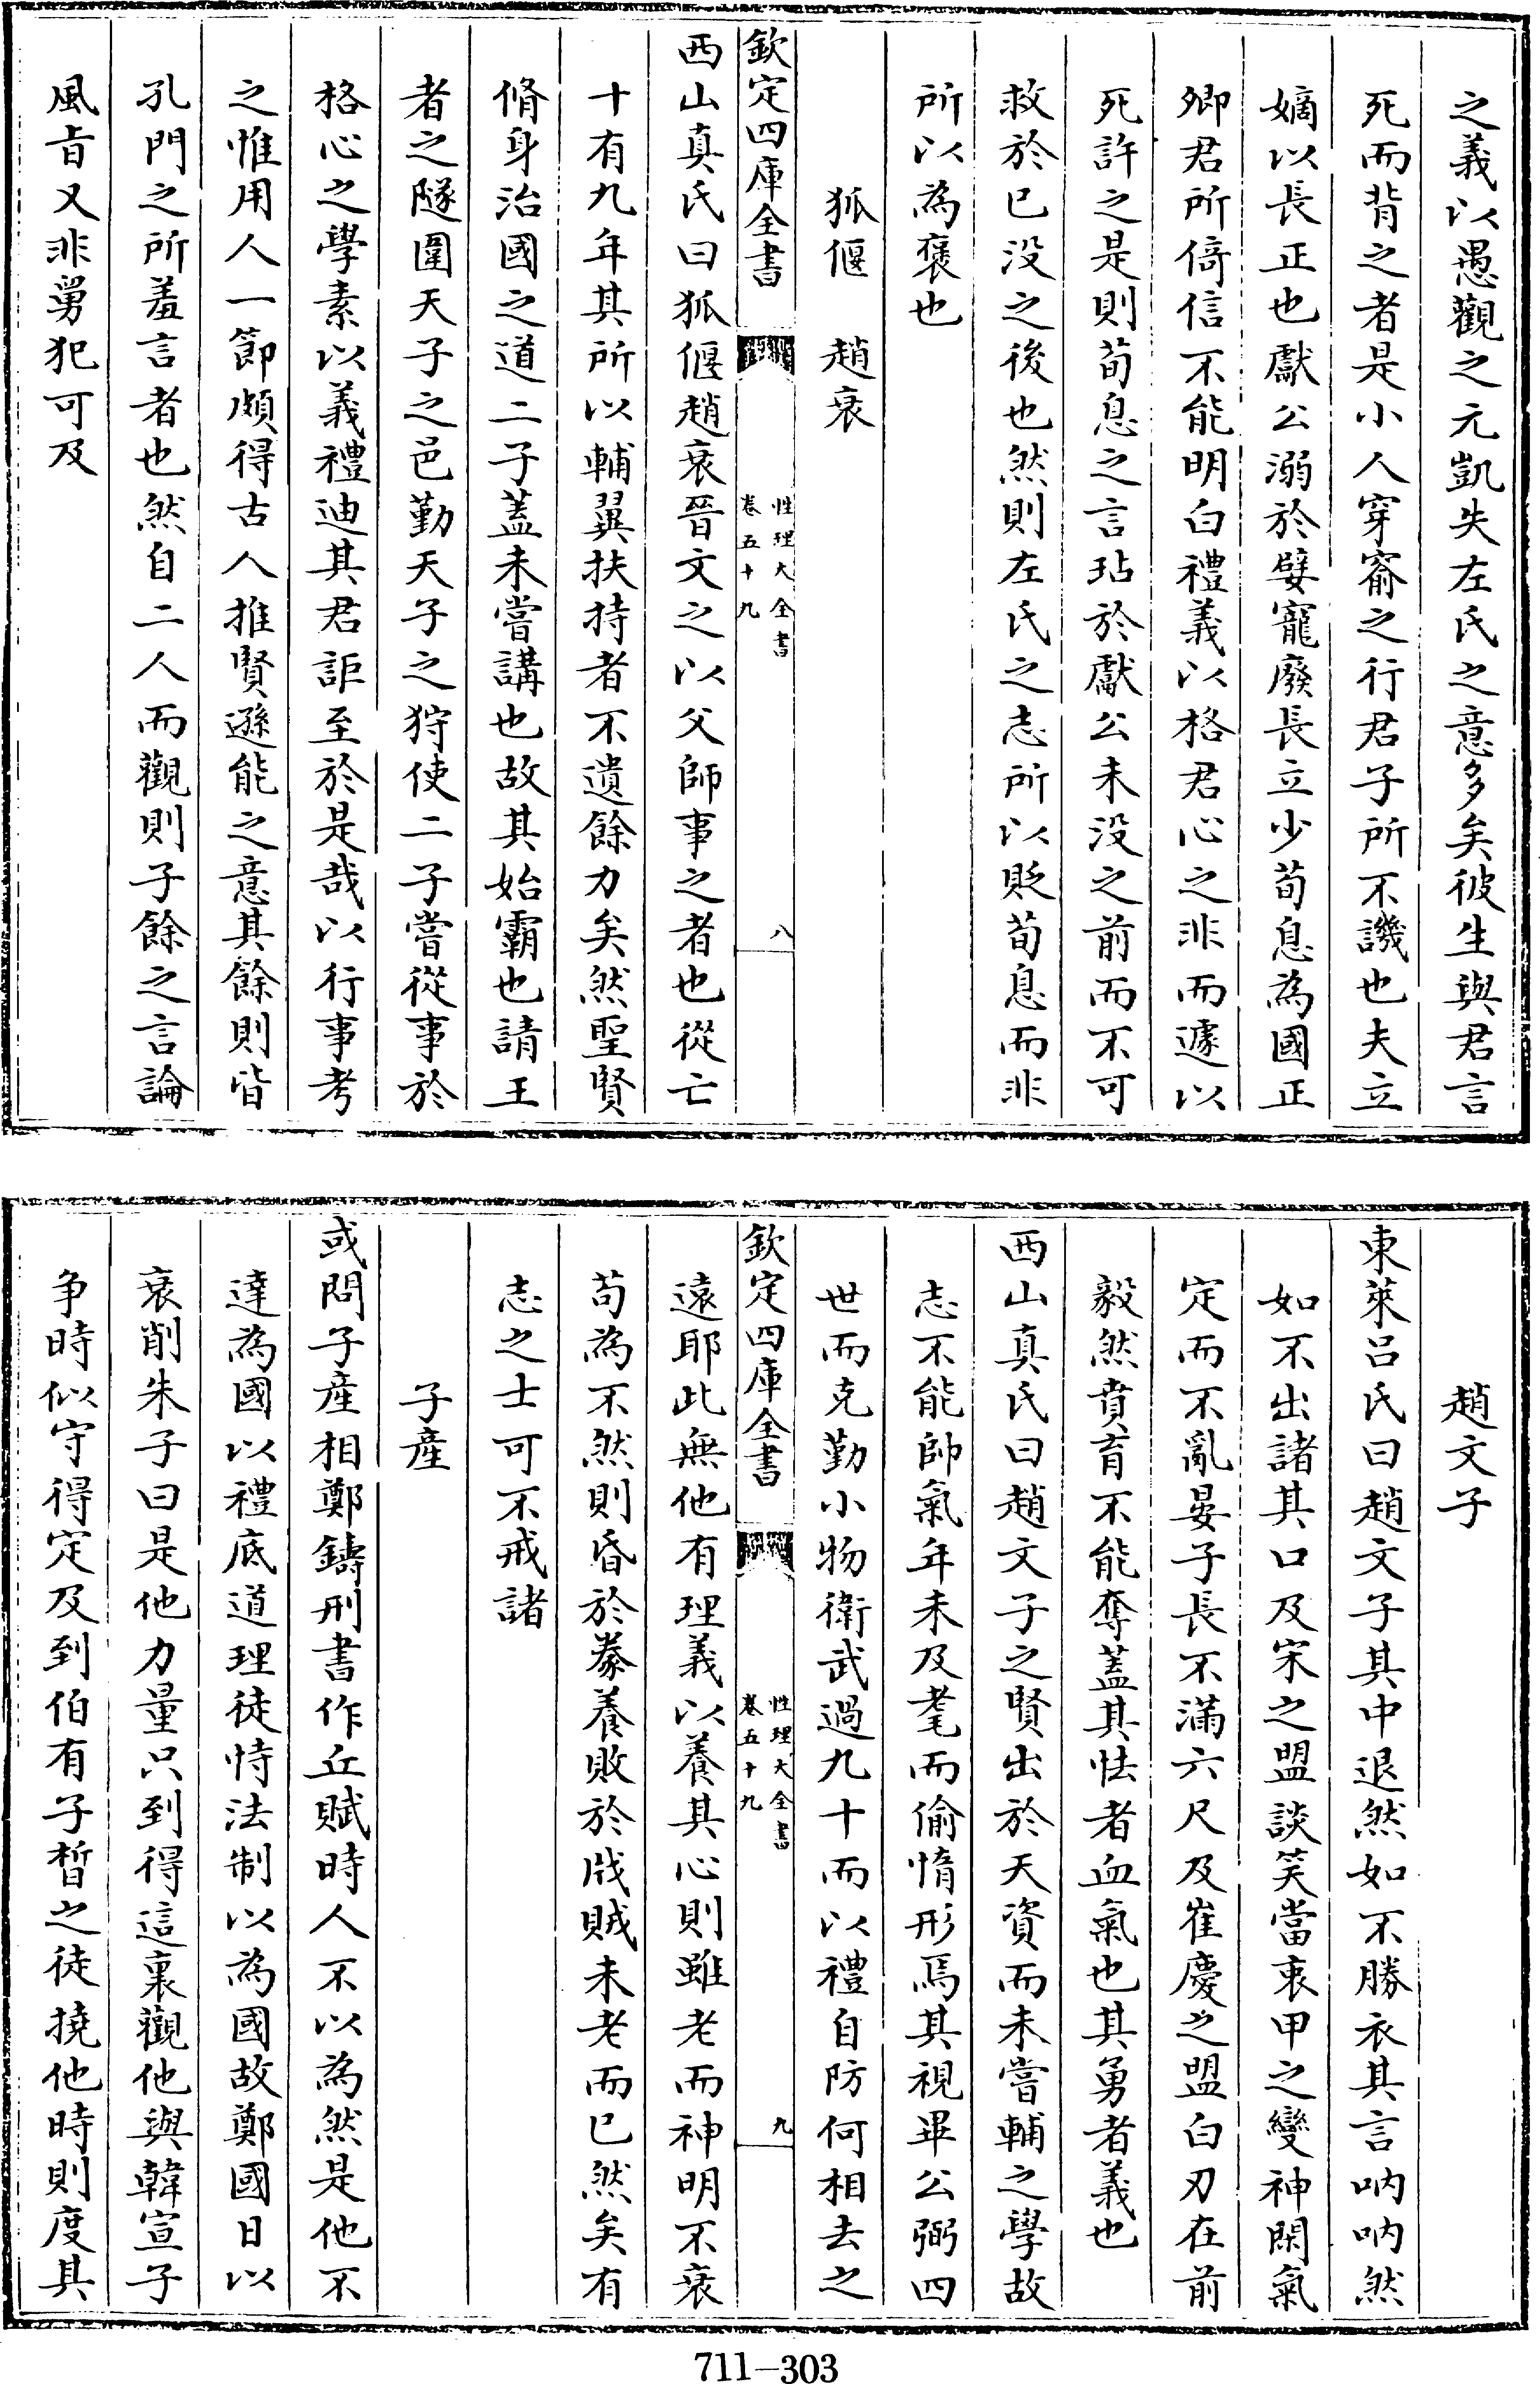 之義以愚觀之元凱失左氏之意多矣彼生與君言
死而背之者是小人穿窬之行君子所不譏也夫立
嫡以長正也獻公溺於嬖寵廢長立少荀息為國正
卿君所倚信不能明白禮義以格君心之非而遽以
死許之是則荀息之言玷於獻公未没之前而不可
救於已没之後也然則左氏之志所以貶荀息而非
所以為褒也
狐偃　趙衰
欽定四庫全書
性理大全書
卷五十九
八
西山真氏曰狐偃趙衰晉文之以父師事之者也從亡
十有九年其所以輔翼扶持者不遺餘力矣然聖賢
脩身治國之道二子蓋未嘗講也故其始霸也請王
者之隧圍天子之邑勤天子之狩使二子嘗從事於
格心之學素以義禮迪其君詎至於是哉以行事考
之惟用人一節頗得古人推賢遜能之意其餘則皆
孔門之所羞言者也然自二人而觀則子餘之言論
風㫖又非舅犯可及
趙文子
東萊呂氏曰趙文子其中退然如不勝衣其言呐呐然
如不出諸其口及宋之盟談笑當衷甲之變神閑氣
定而不亂晏子長不滿六尺及崔慶之盟白刃在前
毅然賁育不能奪蓋其怯者血氣也其勇者義也
西山真氏曰趙文子之賢出於天資而未嘗輔之學故
志不能帥氣年未及耄而偷惰形焉其視畢公弼四
世而克勤小物衛武過九十而以禮自防何相去之
欽定四庫全書
性理大全書
卷五十九
九
遠耶此無他有理義以養其心則雖老而神明不衰
苟為不然則昏於豢養敗於戕賊未老而已然矣有
志之士可不戒諸
子產
或問子產相鄭鑄刑書作丘賦時人不以為然是他不
達為國以禮底道理徒恃法制以為國故鄭國日以
衰削朱子曰是他力量只到得這裏觀他與韓宣子
争時似守得定及到伯有子晳之徒撓他時則度其
711—303